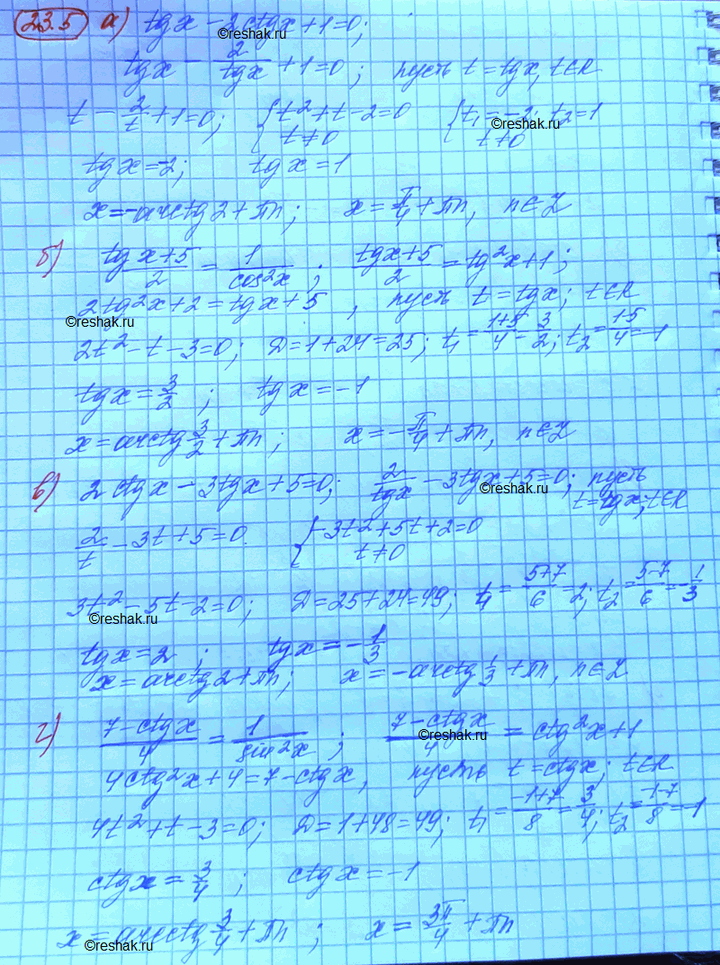 23.5 а) tgx - 2ctgx + 1 = 0;
©reshak.ru
tgx - 2/tgx + 1 = 0; пусть t = tgx, t∈R
t - 2/t + 1 = 0; { t² + t - 2 = 0 { t₁ = -2; t₂ = 1
©reshak.ru ©reshak.ru
t ≠ 0 t ≠ 0
tgx = -2; tgx = 1
x = -arctg2 + πn; x = π/4 + πn, n∈Z
б) (tgx+5)/2 = 1/cos²x; (tgx+5)/2 = tg²x + 1;
2tg²x + 2 = tgx + 5, пусть t = tgx; t∈R
©reshak.ru
2t² - t - 3 = 0; D = 1 + 24 = 25; t₁ = (1+5)/4 = 3/2; t₂ = (1-5)/4 = -1
tgx = 3/2; tgx = -1
x = arctg 3/2 + πn; x = -π/4 + πn, n∈Z
©reshak.ru
в) 2ctgx - 3tgx + 5 = 0; 2/tgx - 3tgx + 5 = 0; пусть
©reshak.ru
t = tgx; t∈R
2/t - 3t + 5 = 0 { -3t² + 5t + 2 = 0
t ≠ 0
3t² - 5t - 2 = 0; D = 25 + 24 = 49; t₁ = (5+7)/6 = 2; t₂ = (5-7)/6 = -1/3
©reshak.ru
tgx = 2; tgx = -1/3
x = arctg2 + πn; x = -arctg 1/3 + πn, n∈Z
г) (7-ctgx)/4 = 1/sin²x; (7-ctgx)/4 = ctg²x + 1
©reshak.ru
4ctg²x + 4 = 7 - ctgx, пусть t = ctgx; t∈R
4t² + t - 3 = 0; D = 1 + 48 = 49; t₁ = (-1+7)/8 = 3/4; t₂ = (-1-7)/8 = -1
ctgx = 3/4; ctgx = -1
x = arcctg 3/4 + πn; x = 3π/4 + πn
©reshak.ru